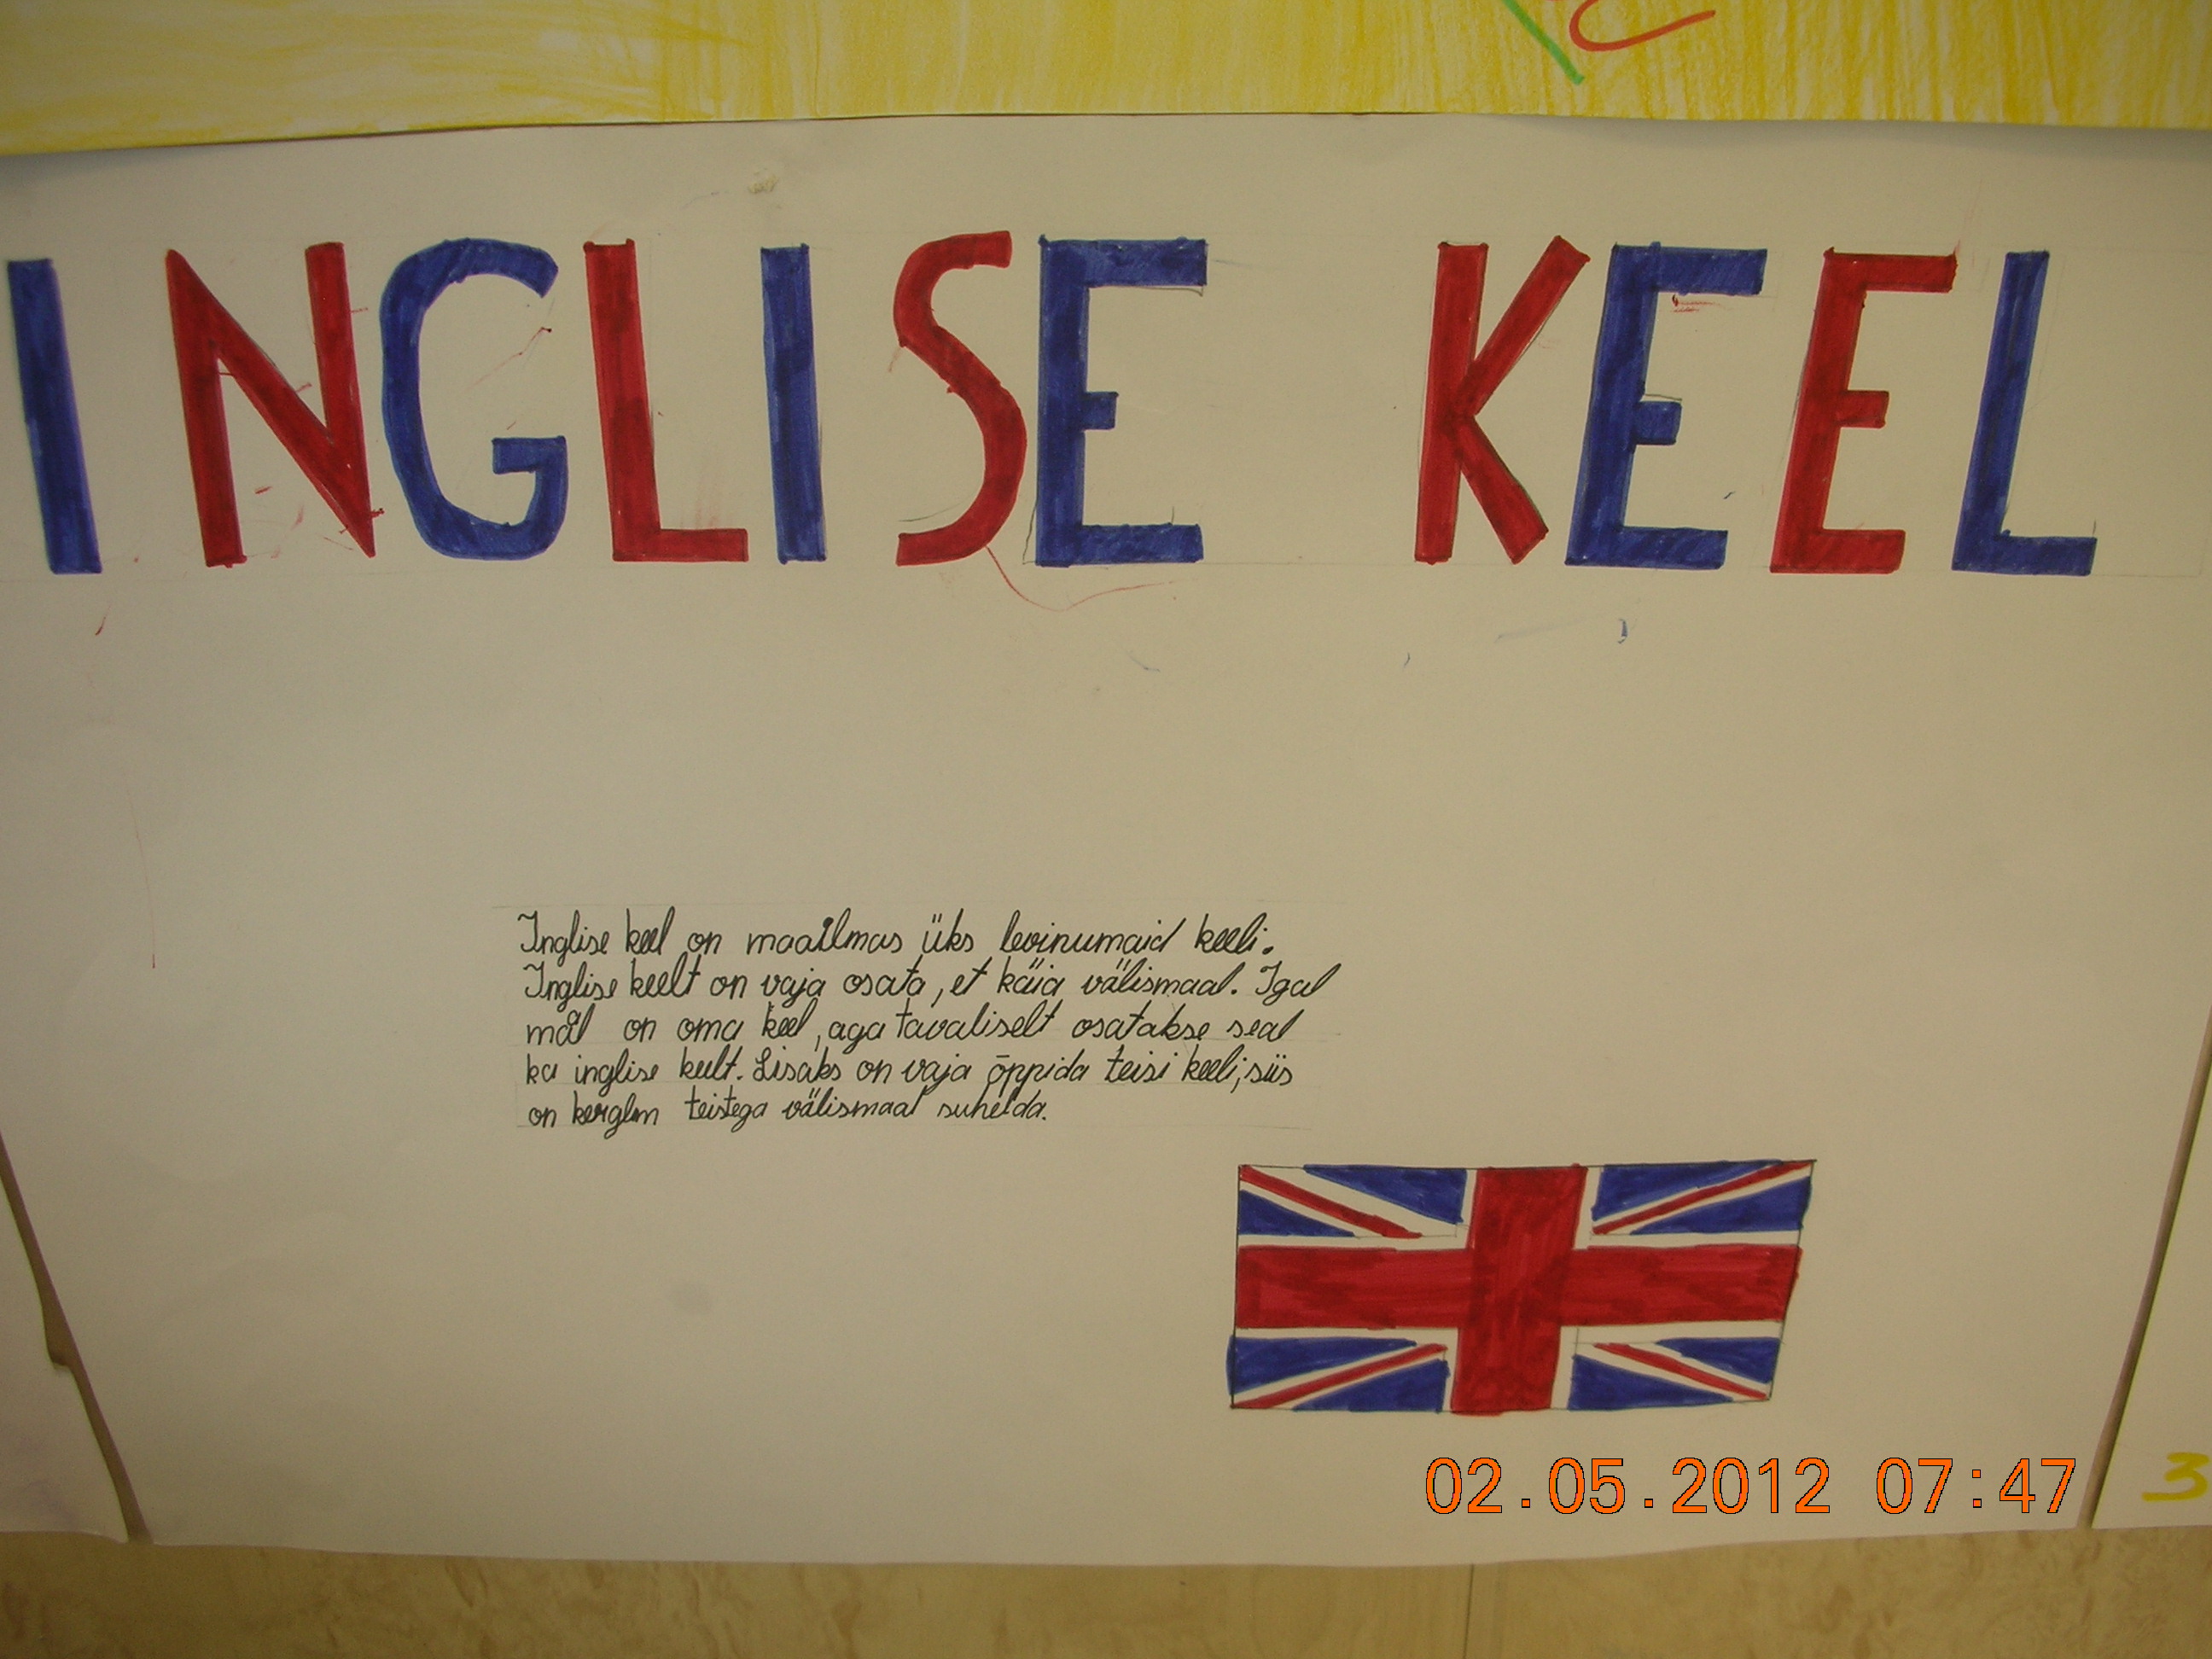 INGLISE KEEL
Inglise keel on maailmas üks levinumaid keeli.
Inglise keelt on vaja osata, et käia välismaal. Igal
maal on oma keel, aga tavaliselt osatakse seal
ka inglise keelt. Lisaks on vaja õppida teisi keeli, siis
on kergem teistega välismaal suhelda.
02.05.2012 07:47
3